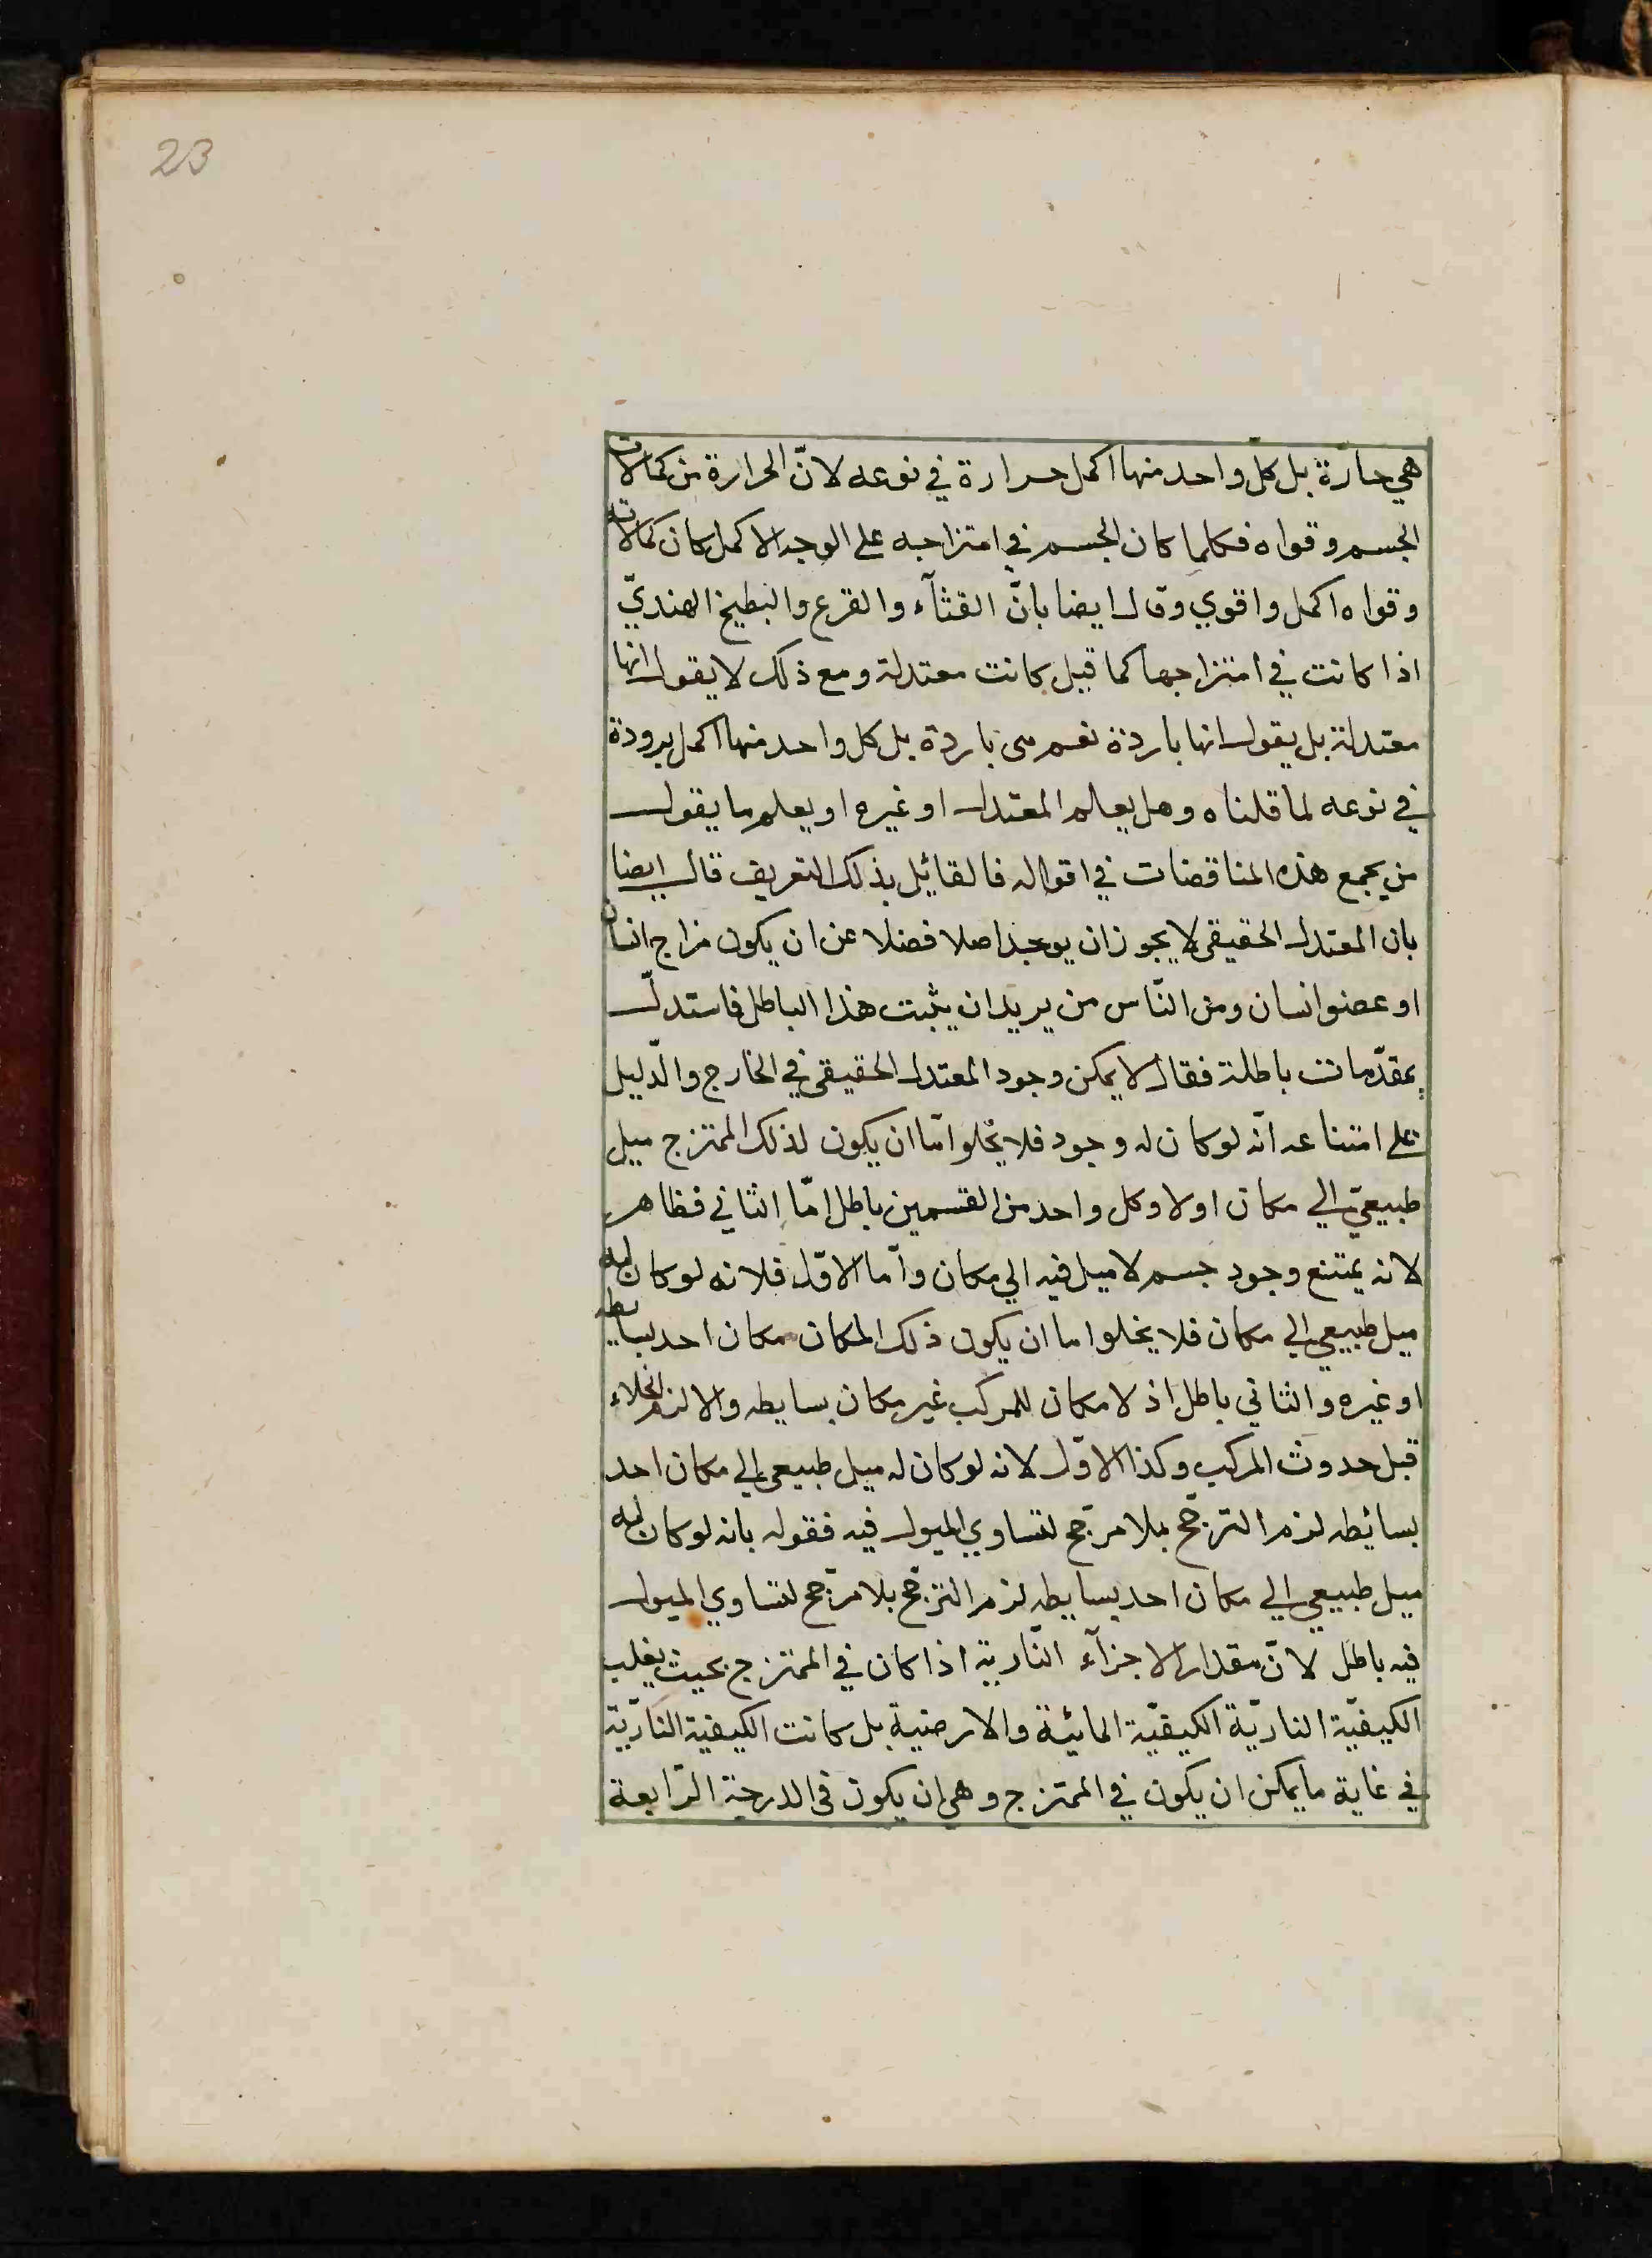 23
هي حارّة بل كلّ واحد منها اكمل حرارة في نوعه لانّ الحرارة من كمالات
الجسم وقواه فكلما كان الجسم في امتزاجه على الوجه الاكمل كان كمالاته
وقواه اكمل واقوي وقال ايضا بانّ القثآء والقرع والبطيخ الهنديّ
اذا كانت في امتزاجها كما قيل كانت معتدلة ومع ذلك لا يقول انها
معتدلة بل يقول انها باردة نعم هى باردة بل كل واحد منها اكمل برودة
في نوعه لما قلناه وهل يعلم المعتدل او غيره او يعلم ما يقول
من يجمع هذه المناقضات في اقواله فالقائل بذلك التعريف قال ايضا
بان المعتدل الحقيقى لا يجوز ان يوجد اصلا فضلا عن ان يكون مزاج انسان
او عضو انسان ومن النّاس من يريد ان يثبت هذا الباطل فاستدلّ
بمقدّمات باطلة فقال لا يمكن وجود المعتدل الحقيقى في الخارج والدّليل
على امتناعه انّه لو كان له وجود فلا يخلوا امّا ان يكون لذلك الممتزج ميل
طبيعيّ الي مكان اولا وكل واحد من القسمين باطل امّا الثاني فظاهر
لانه يمتنع وجود جسم لا ميل فيه الي مكان وامّا الاوّل فلانه لو كان له
ميل طبيعي الي مكان فلا يخلوا اما ان يكون ذلك المكان مكان احد بسايطه
او غيره والثاني باطل اذ لا مكان للمركب غير مكان بسايطه والا لزم الخلاء
قبل حدوث المركب وكذا الاوّل لانه لو كان له ميل طبيعي الي مكان احد
بسائطه لزم الترجّح بلا مرجّح لتساوي الميول فيه فقوله بانه لو كان له
ميل طبيعي الي مكان احد بسايطه لزم الترجّح بلا مرجّح لتساوي الميول
فيه باطل لانّ مقدار الاجزآء النّارية اذا كان في الممتزج بحيث يغلب
الكيفيّة الناريّة الكيفيّة المائيّة والارضية بل كانت الكيفية الناريّة
في غاية ما يمكن ان يكون في الممتزج وهي ان يكون في الدرجة الرّابعة